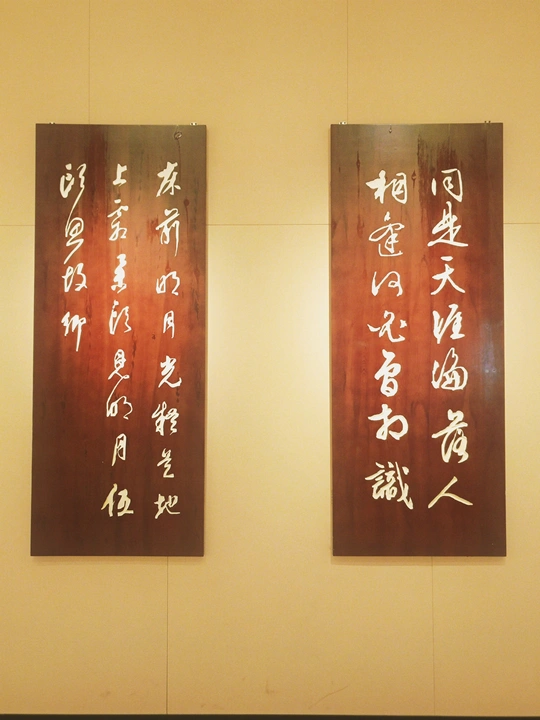 同是天涯淪落人
相逢何必曾相識
床前明月光疑是地
上霜舉頭見明月低
頭思故鄉